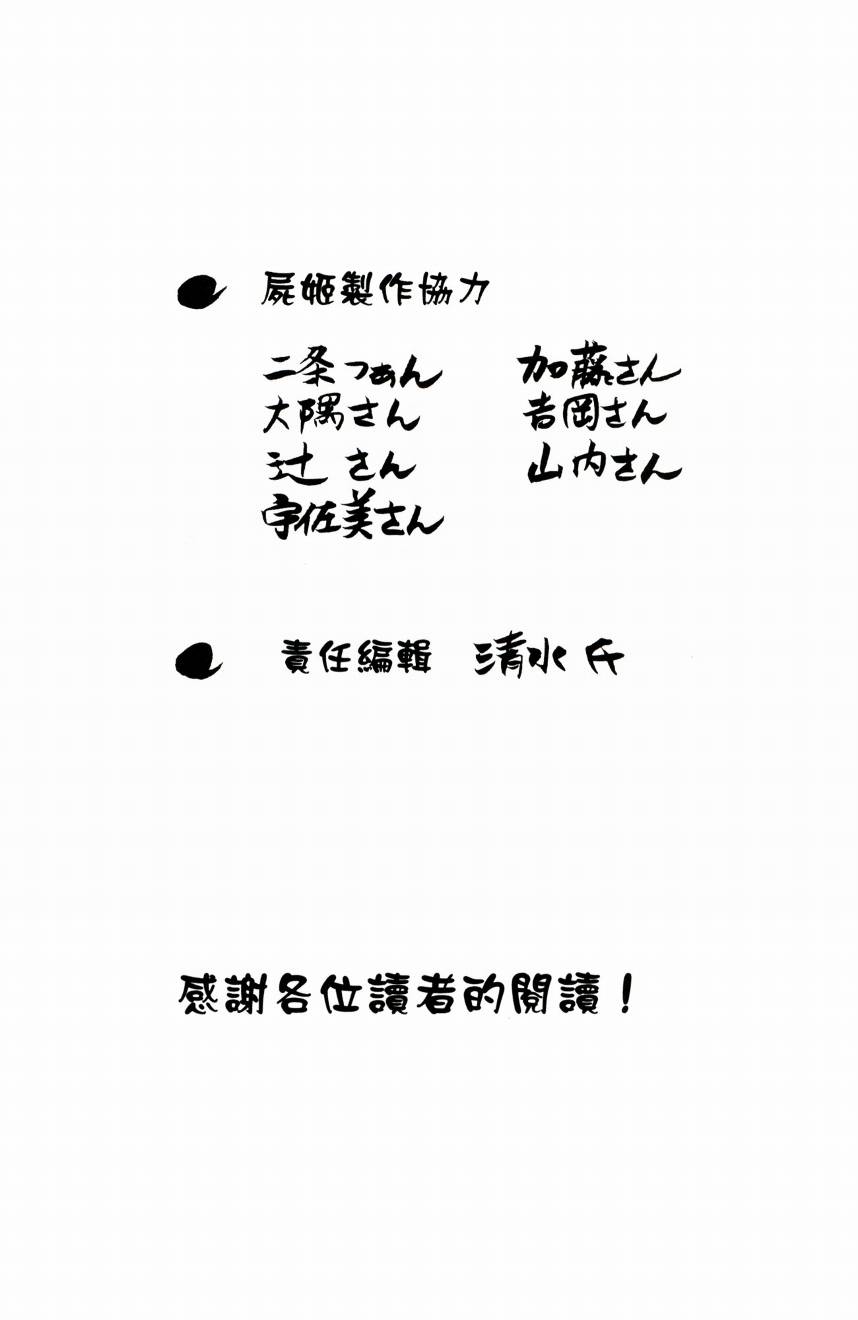 屍姬製作協力
二条つぁん 加藤さん
大隅さん 吉岡さん
辻さん 山内さん
宇佐美さん
責任編輯 清水氏
感謝各位讀者的閱讀!